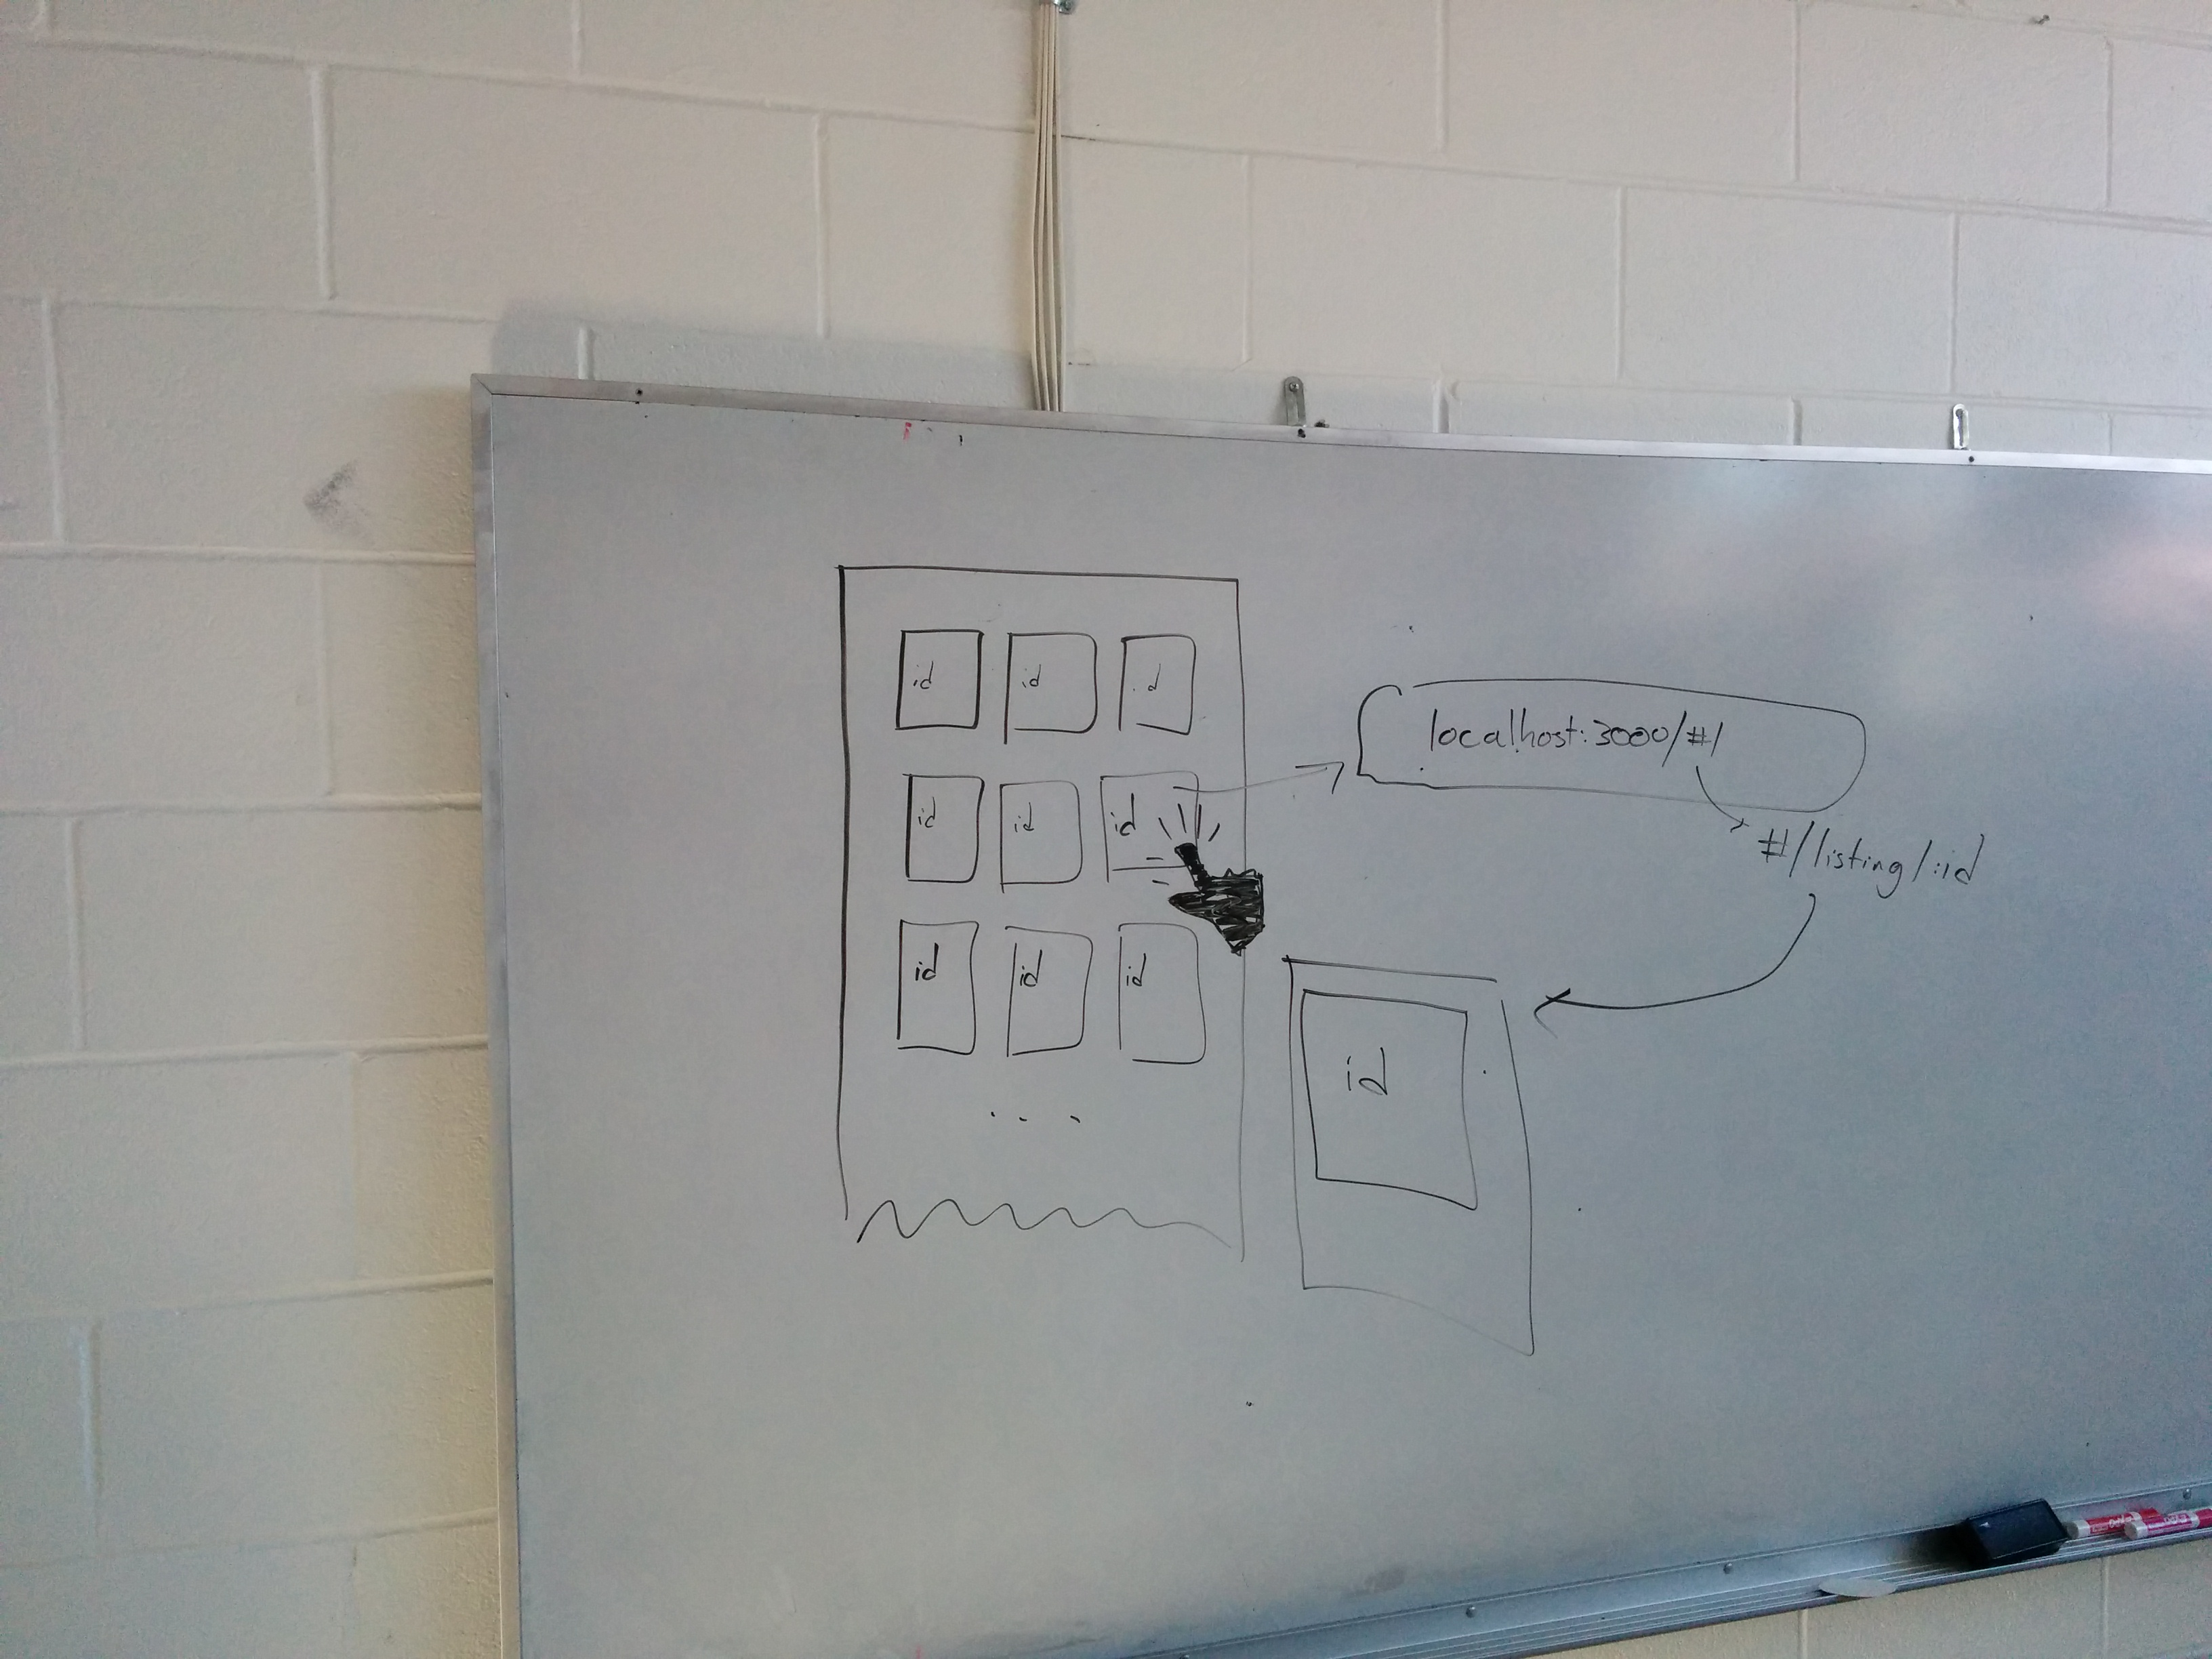 id id id
id id id
id id id
...
localhost:3000/#/
#/listing/:id
id